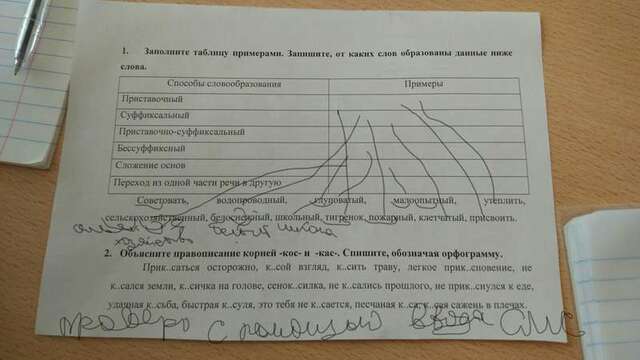 1. Заполните таблицу примерами. Запишите, от каких слов образованы данные ниже
слова.
Способы словообразования Примеры
Приставочный
Суффиксальный
Приставочно-суффиксальный
Бессуффиксный
Сложение основ
Переход из одной части речи в другую
Советовать, водопроводный, глуповатый, малоопытный, утеплить,
сельскохозяйственный, белоснежный, школьный, тигренок, пожарный, клетчатый, присвоить.
белый школа
хозяйство
2. Объясните правописание корней -кос- и -кас-. Спишите, обозначая орфограмму.
Прик..саться осторожно, к..сой взгляд, к..сить траву, легкое прик..сновение, не
к..сался земли, к..сичка на голове, сенок..силка, не к..сались прошлого, не прик..снулся к еде,
удачная к..сьба, быстрая к..суля, это тебя не к..сается, песчаная к..са, к..сая сажень в плечах.
с помощью